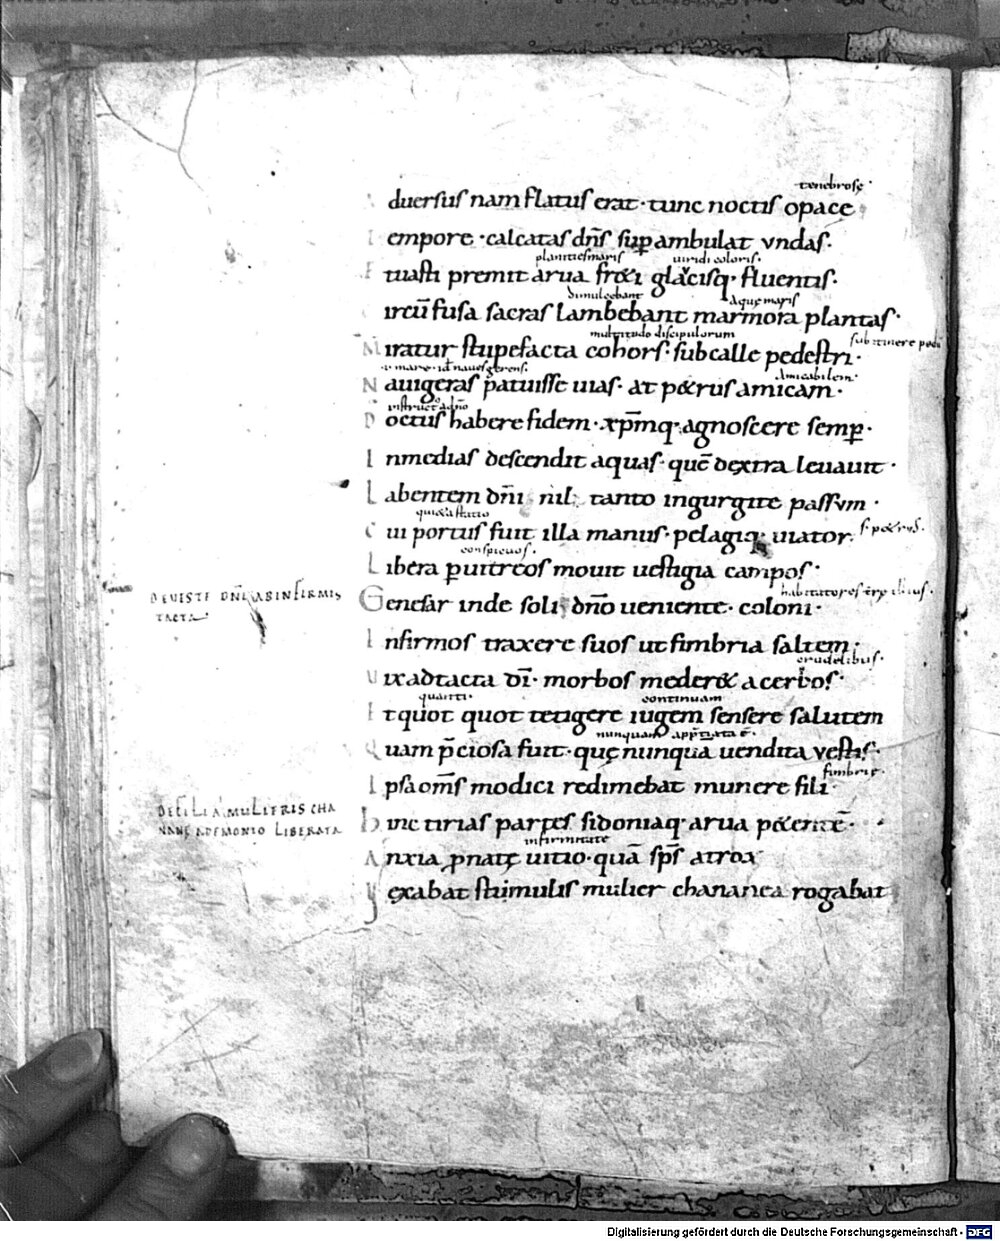 tenebrosę·
Aduersus nam flatus erat· tunc noctis opacę
Tempore· calcatas dn̄s sup̱ ambulat vndas·
planities maris uiridi coloris·
Fluasti premit arua fr&i glacisq· fluentis·
dimulcebant aquę maris
Circū fusa sacras lambebant marmora plantas·
multitudo discipulorum sub itinere
Miratur stupefacta cohors· sub calle pedestri·
i· mare· id naues gerens· Amicabilem·
Nauigeras patuisse uias· at p&rus amicam·
Doctus habere fidem· xp̄mq· agnoscere semp̱·
Inmedias descendit aquas· quē dextra leuauit·
Labentem dn̄i· nil; tanto ingurgite passvm·
quia
Cui portus fuit illa manus· pelagiq· uiator·
conspicuos·
Libera p̱ uitreos mouit uestigia campos·
DE VESTE DN̄I AB INFIRMIS
TACTA
habitatores
Genesar inde soli dn̄o ueniente· coloni·
Infirmos traxere suos ut fimbria saltem·
crudelibus·
Vix adtacta dī· morbos meder& acerbos·
quanti· continuam
Et quot quot tetigere iugem sensere salutem
nunquam ē·
Quam p̄ciosa fuit· quę nunquā uendita vestis·
fimbrię·
Ipsa om̄s modici redimebat munere fili·
DE FILIA MULIERIS CHA
NANĘ A DEMONIO LIBERATA
Hinc tirias partes sidoniaq· arua p&entē·
infirmitate
Anxia p̱ natę uitio· quā sp̄s atrox
Vexabat stimulis mulier chananea rogabat
Digitalisierung gefördert durch die Deutsche Forschungsgemeinschaft - DFG